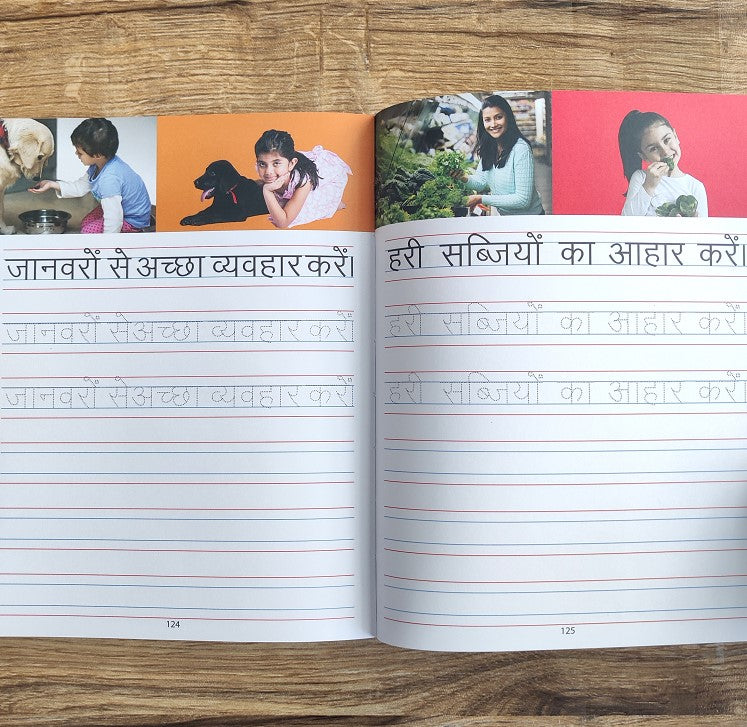 जानवरों से अच्छा व्यवहार करें।
जानवरों से अच्छा व्यवहार करें।
जानवरों से अच्छा व्यवहार करें।
124
हरी सब्जियों का आहार करें।
हरी सब्जियों का आहार करें।
हरी सब्जियों का आहार करें।
125